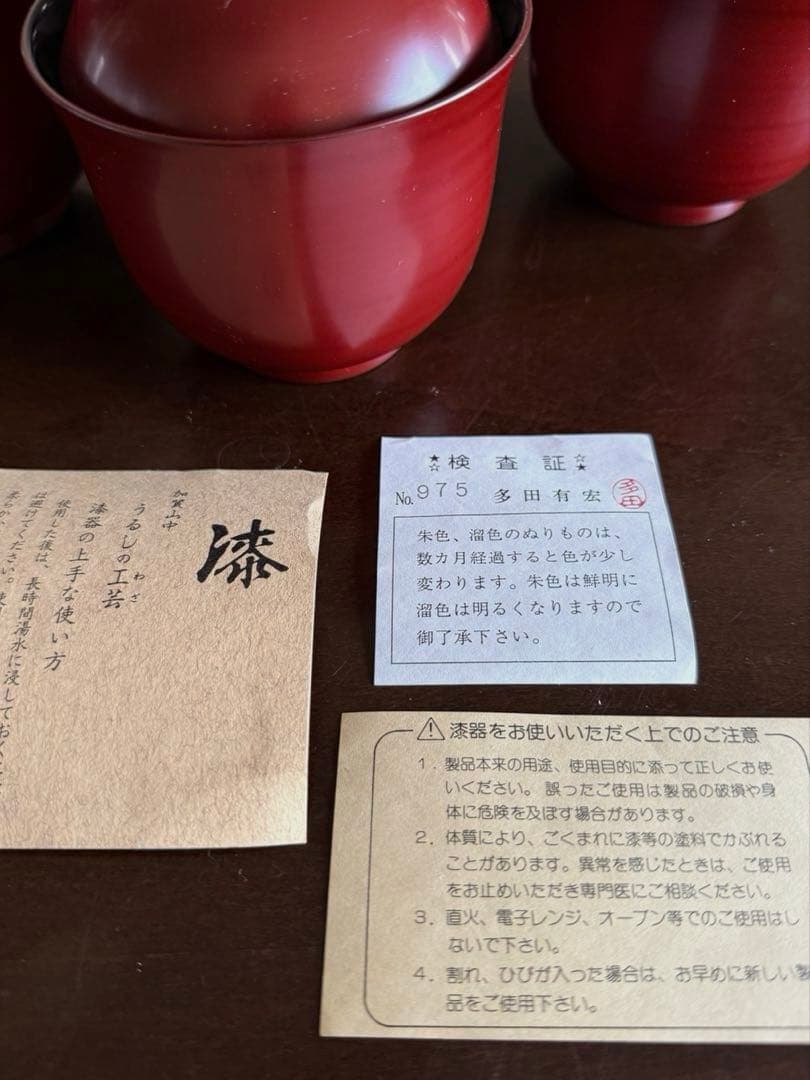 漆
加賀山中
うるしの工芸
わざ
漆器の上手な使い方
使用した後は、長時間湯水に浸しておくこと
は避けてください。
☆検査証☆
No.975 多田有宏 多田
朱色、溜色のぬりものは、
数カ月経過すると色が少し
変わります。朱色は鮮明に
溜色は明るくなりますので
御了承下さい。
⚠漆器をお使いいただく上でのご注意
1．製品本来の用途、使用目的に添って正しくお使
いください。誤ったご使用は製品の破損や身
体に危険を及ぼす場合があります。
2．体質により、ごくまれに漆等の塗料でかぶれる
ことがあります。異常を感じたときは、ご使用
をお止めいただき専門医にご相談ください。
3．直火、電子レンジ、オーブン等でのご使用はし
ないで下さい。
4．割れ、ひびが入った場合は、お早めに新しい製
品をご使用下さい。